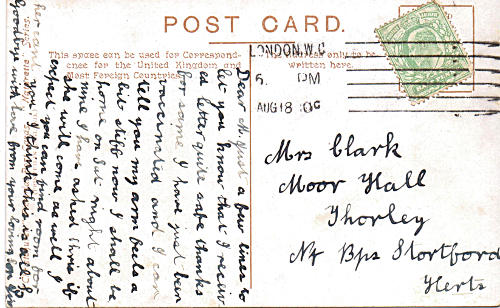 POST CARD.
This space can be used for Correspond-
ence for the United Kingdom and
Most Foreign Countries.
only to be
written here.
LONDON. W.C
6. PM
AUG 18 06
Mrs Clark
Moor Hall
Thorley
Nr Bps Stortford
Herts
Dear M. Just a few lines to
let you know that I receiv
ed letter quite safe thanks
for same I have just been
vaccinated and I can
tell you my arm feels a
bit stiff now I shall be
home on Sat night about
nine I have asked if
she will come as well I
expect you can find room for
her can't you I think this is all
Goodbye with love from your loving